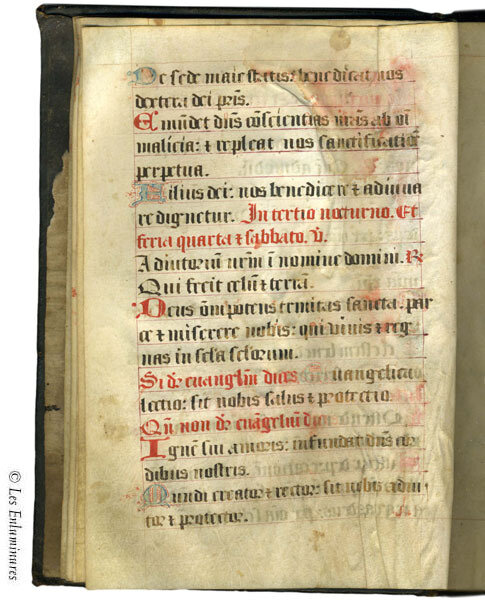 De sede maiestatis: benedicat nos
dextera dei pris.
Emundet dns conscientias nras ab oi
malicia: et repleat nos sanctificatio
perpetua.
Filius dei: nos benedicere et adiuua
re dignetur. In tertio nocturno. Et
feria quarta et sabbato. V.
Adiutoriu nrm i nomine domini. R
Qui fecit celu et terra.
Deus oipotens trinitas sancta: par
ce et miserere nobis: qui viuis et reg
nas in scla sclorum.
Si de euangliu dices Euangelica
lectio: sit nobis salus et protectio.
Qn non de euangeliu
Igne sui amoris: infundat dns cor
dibus nostris.
Mundi creator et rector: sit nobis
tor et protector.
© Les Enluminures